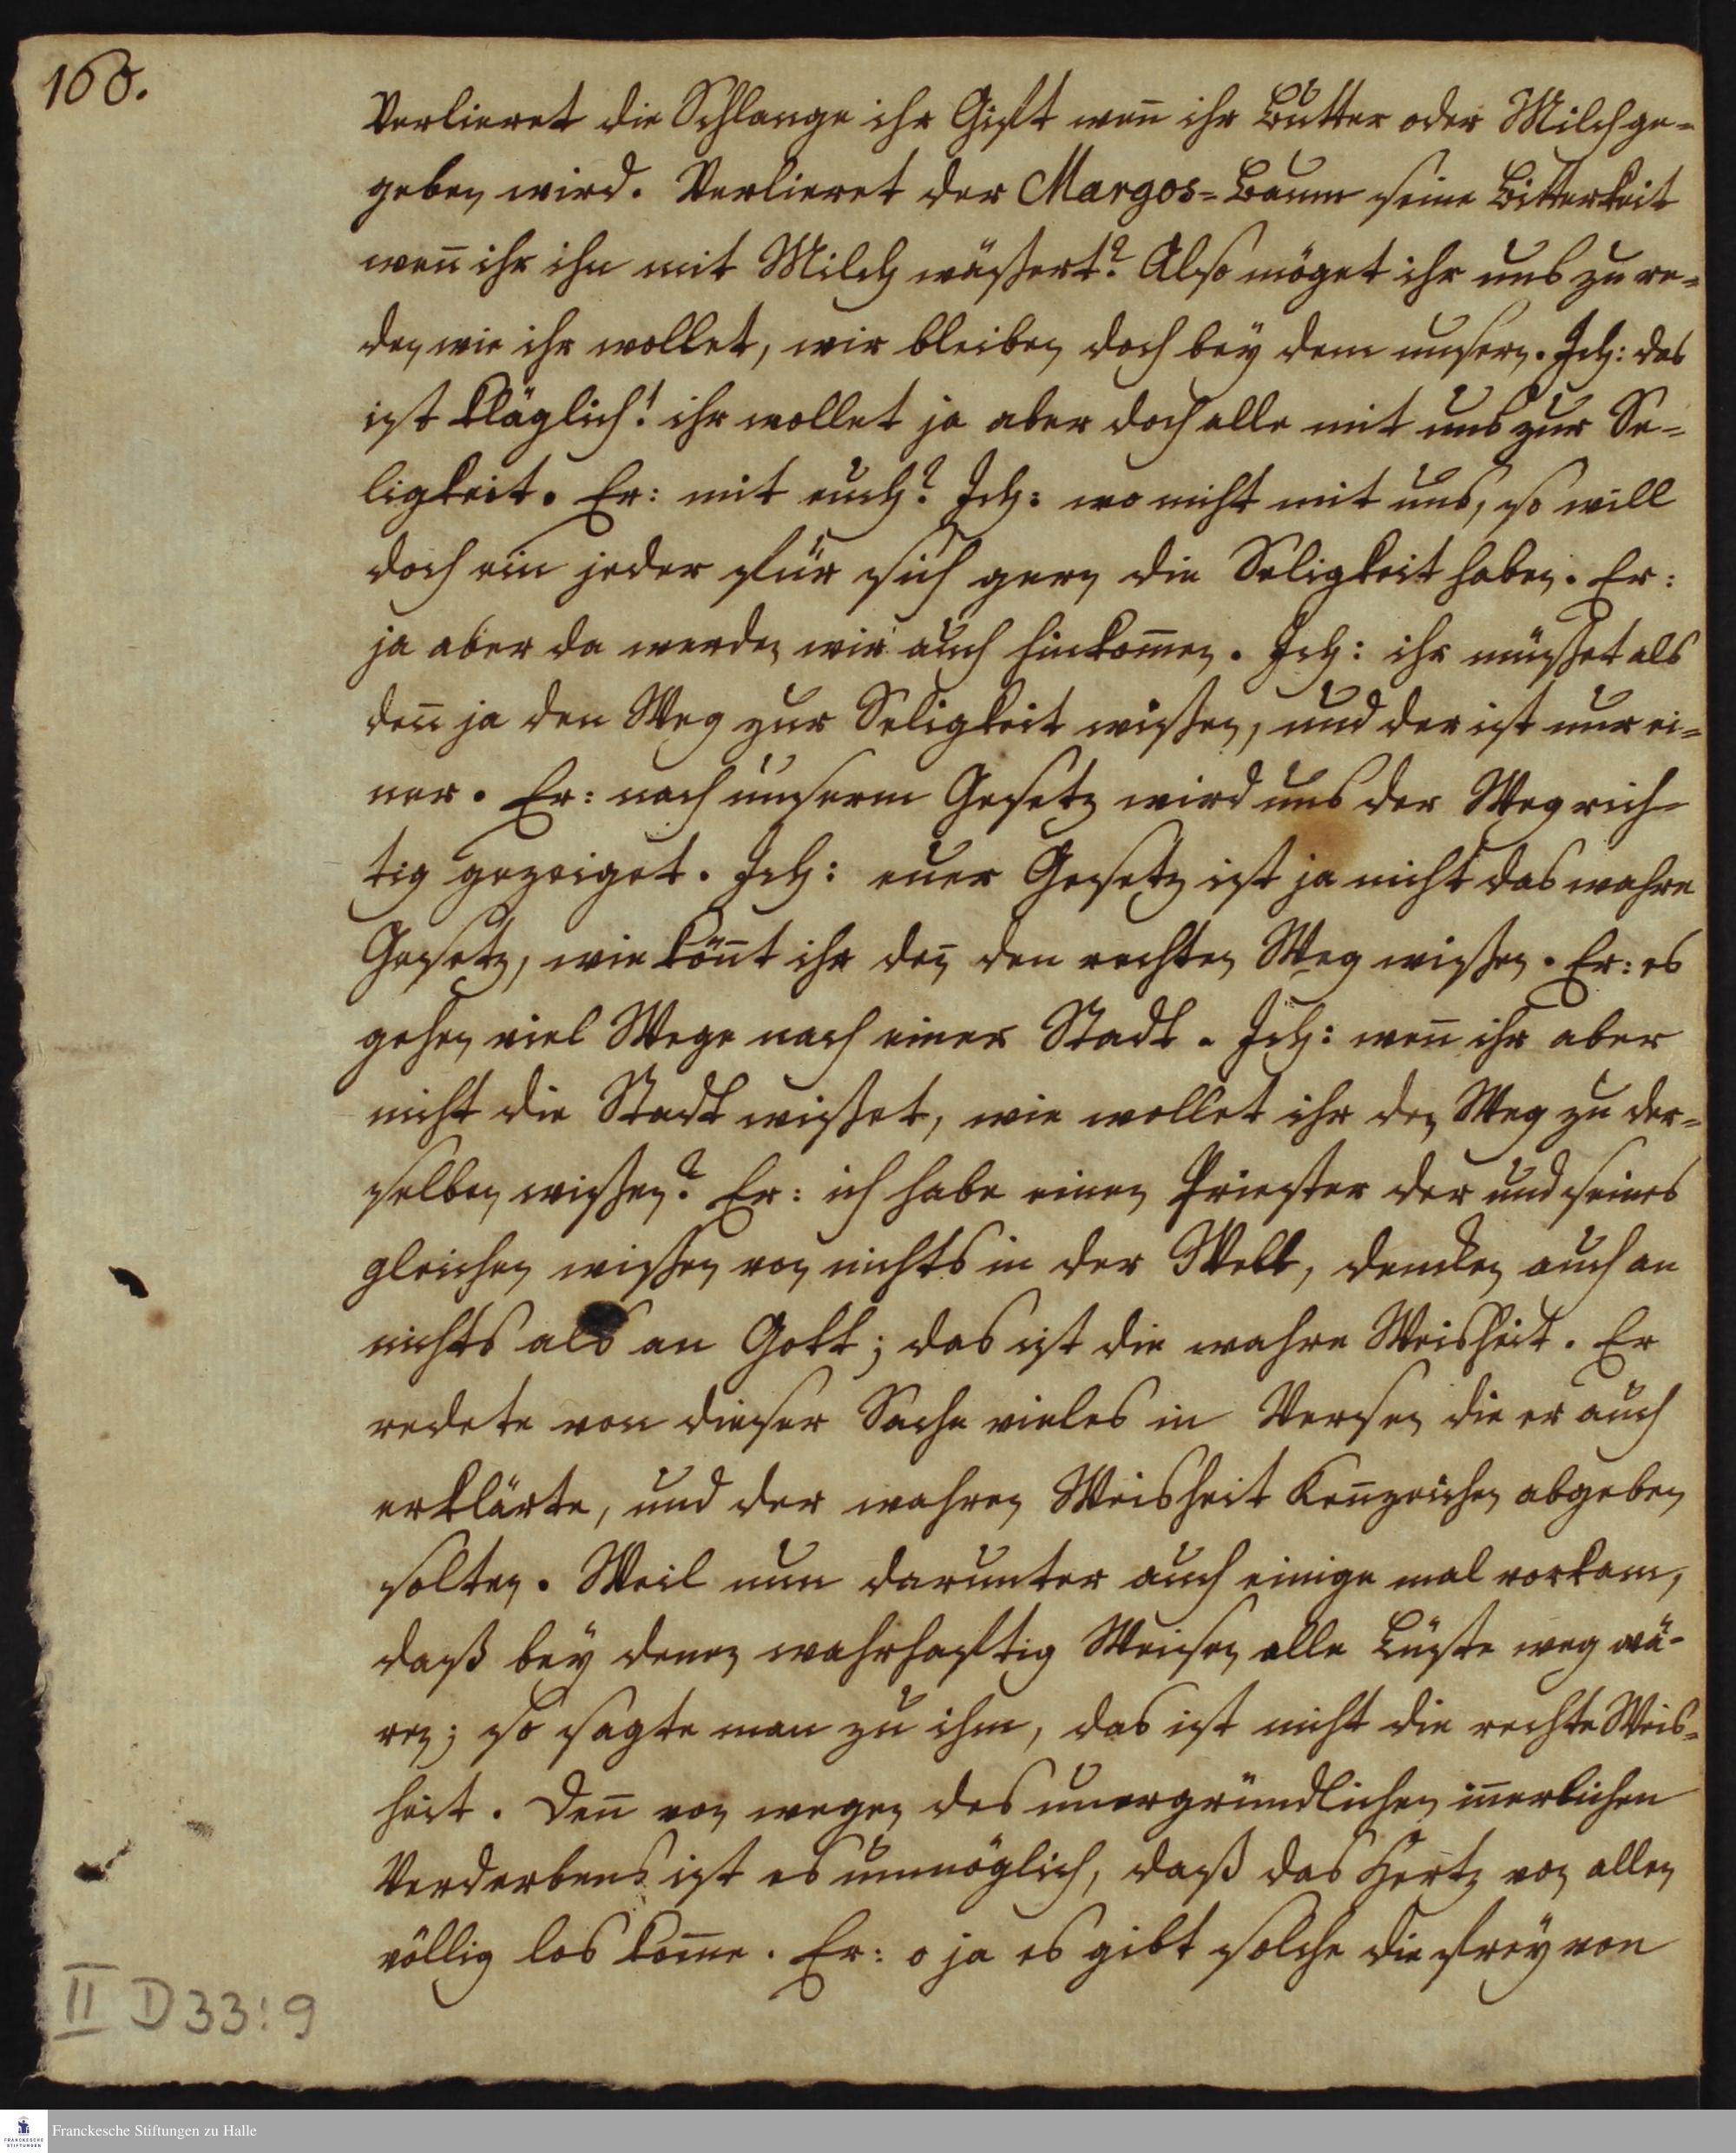 160.
Verlieret die Schlange ihr Gift wen̄ ihr Butter oder Milch ge-
geben wird. Verlieret der Margos-Baum seine Bitterkeit
wen̄ ihr ihn mit Milch wäßert? Also möget ihr uns zu re-
den wie ihr wollet, wir bleiben doch bey dem unsern. Ich: das
ist kläglich! ihr wollet ja aber doch alle mit uns zur Se-
ligkeit. Er: mit euch? Ich: wo nicht mit uns, so will
doch ein jeder für sich gern die Seligkeit haben. Er:
ja aber da werden wir auch hinkom̄en. Ich: ihr müßet als
den̄ ja den Weg zur Seligkeit wißen, und der ist nur ei-
ner. Er: nach unserm Gesetz wird uns der Weg rich-
tig gezeiget. Ich: euer Gesetz ist ja nicht das wahre
Gesetz, wie kön̄t ihr den̄ den rechten Weg wißen. Er: es
gehen viel Wege nach einer Stadt. Ich: wen̄ ihr aber
nicht die Stadt wißet, wie wollet ihr den Weg zu der-
selben wißen? Er: ich habe einen Priester der und seines
gleichen wißen von nichts in der Welt, dencken auch an
nichts als an Gott; das ist die wahre Weisheit. Er
redete von dieser Sache vieles in Versen die er auch
erklärte, und der wahren Weisheit Ken̄zeichen abgeben
solten. Weil nun darunter auch einige mal vorkam,
daß bey denen wahrhafftig Weisen alle Lüste weg wä-
ren; so sagte man zu ihm, das ist nicht die rechte Weis-
heit. Den̄ von wegen des unergründlichen in̄erlichen
Verderbens ist es unmöglich, daß das Hertz von allen
völlig los kom̄e. Er: o ja es gibt solche die frey von
II D 33:9
FRANCKESCHE STIFTUNGEN
Franckesche Stiftungen zu Halle